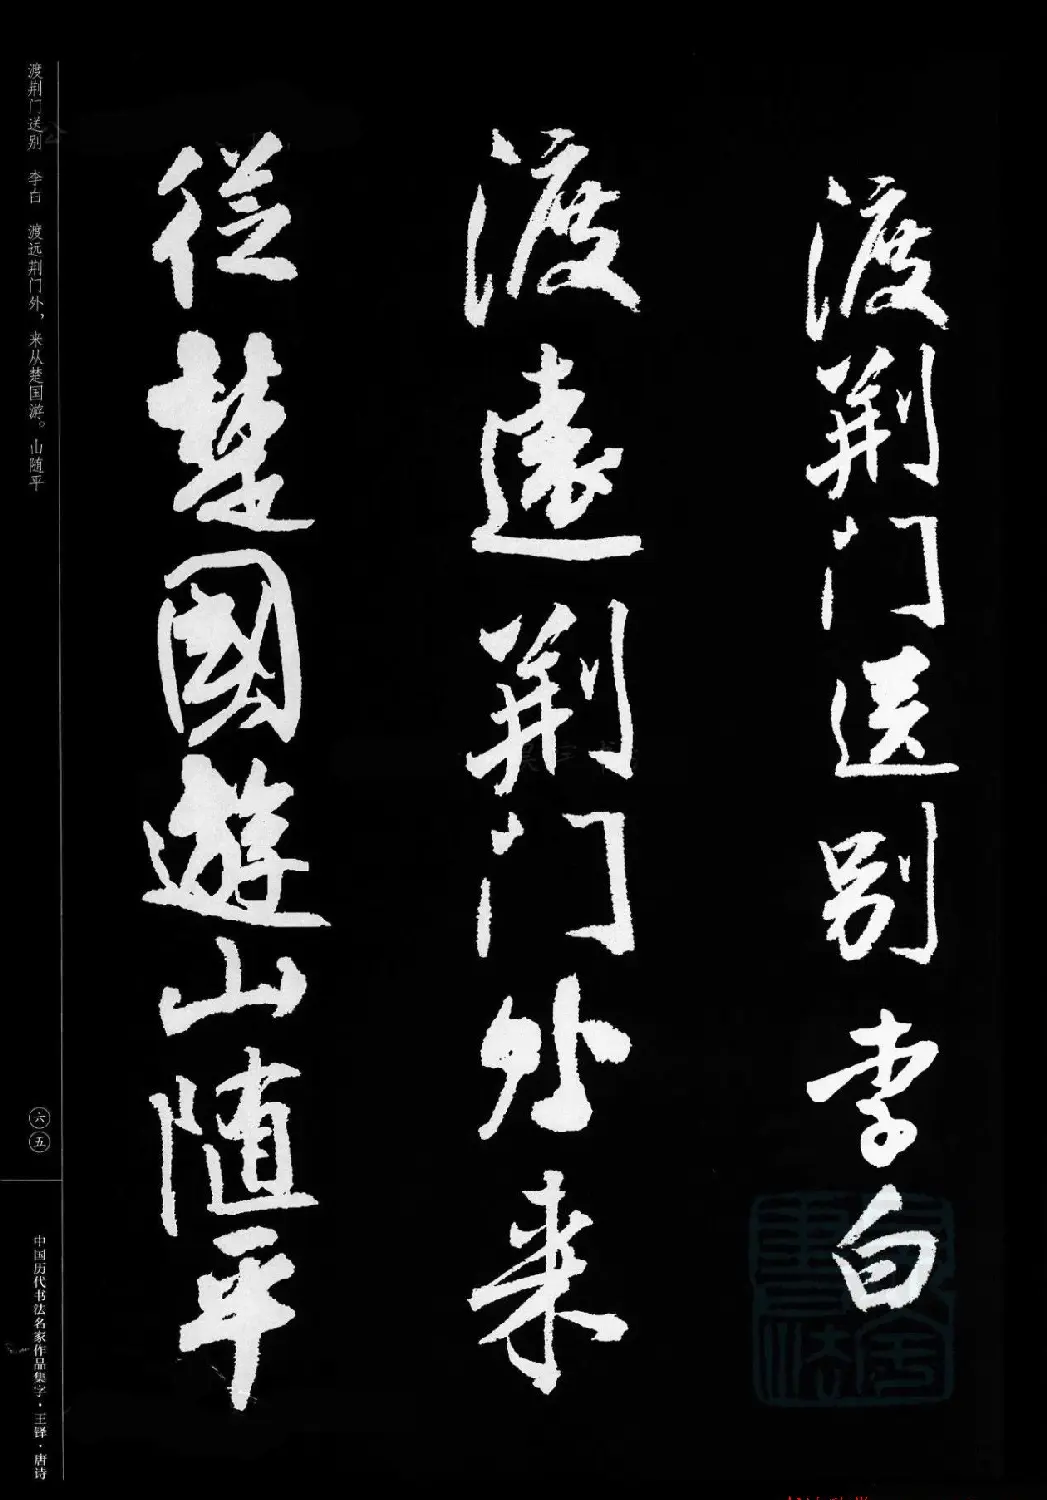 渡荆门送别 李白
渡遠荆门外来
從楚國遊山随平
渡荆门送别 李白 渡远荆门外，来从楚国游。山随平
六五
中国历代书法名家作品集字·王铎·唐诗